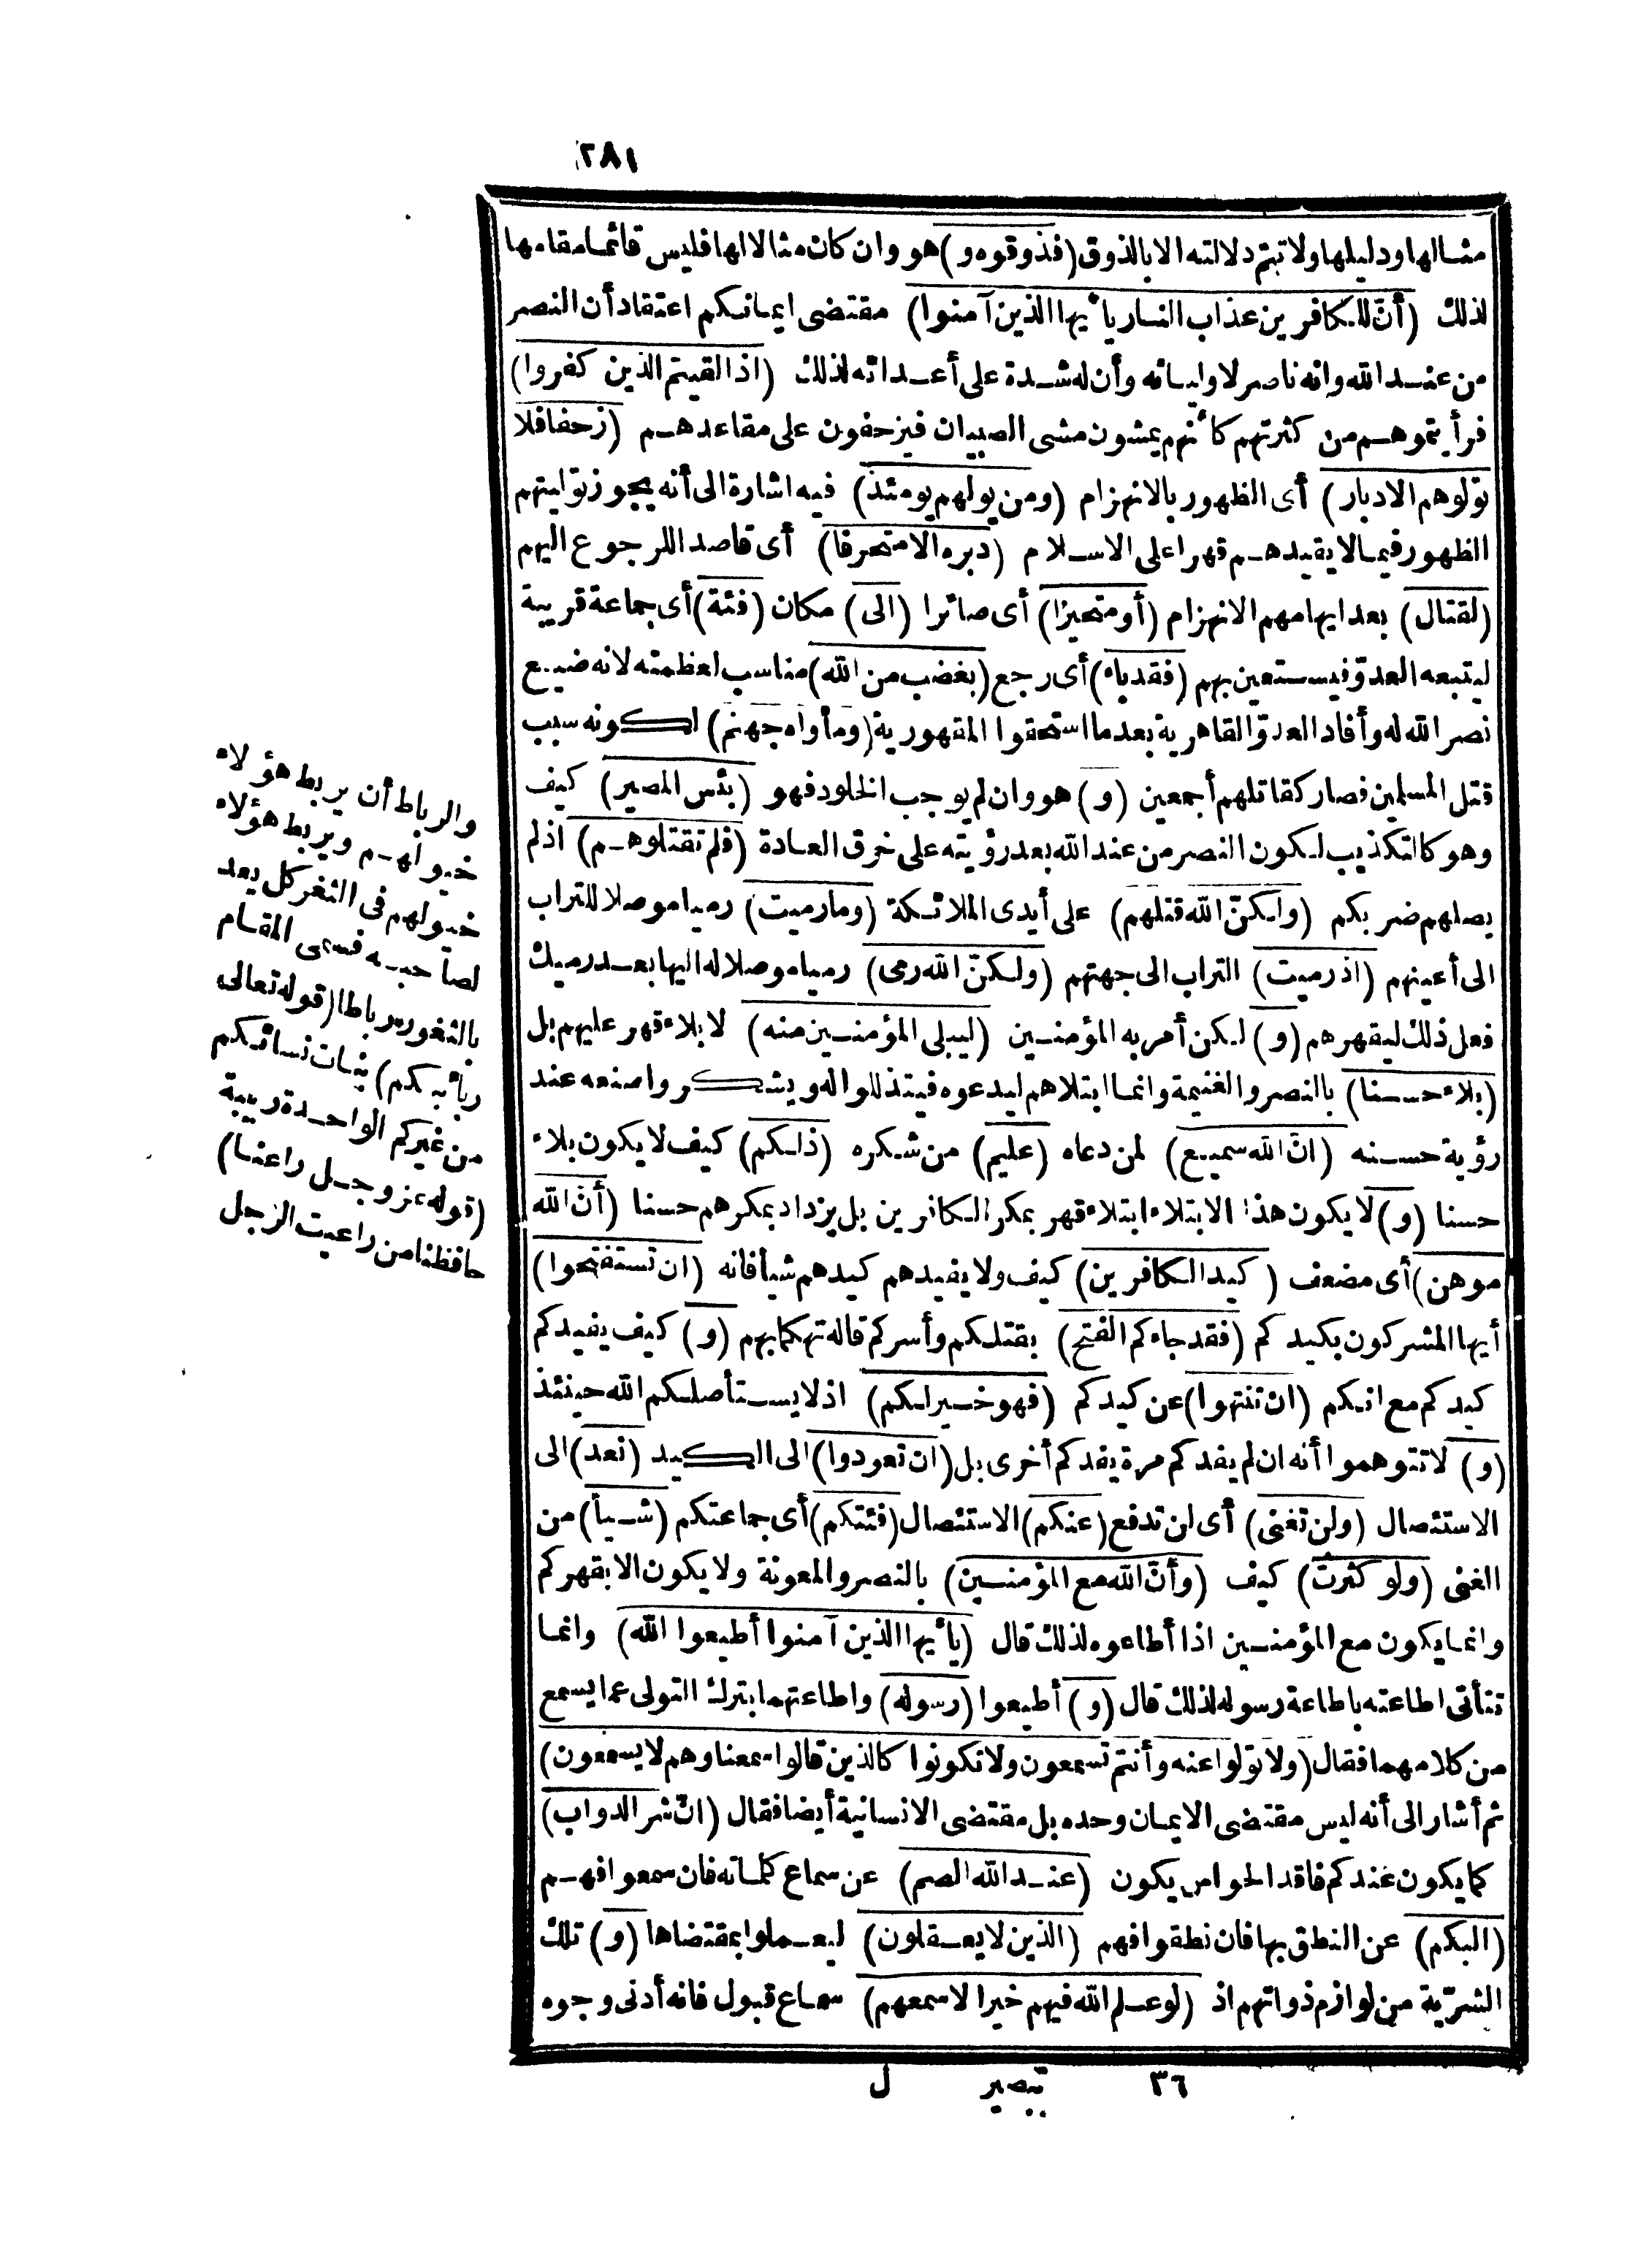 ٢٨١
مثالها ودليلها ولا تتم دلالته الا بالذوق (فذوقوه و) هو وان كان مثالا لها فليس قائما مقامها
لذلك (أنّ للكافرين عذاب النار يا أيها الذين آمنوا) مقتضى ايمانكم اعتقاد أن النصر
من عند الله وانه ناصر لاوليائه وأن له شدة على أعدائه لذلك (اذا لقيتم الذين كفروا)
فرأيتموهم من كثرتهم كأنهم يمشون مشى الصبيان فيزحفون على مقاعدهم (زحفا فلا
تولوهم الادبار) أى الظهور بالانهزام (ومن يولهم يومئذ) فيه اشارة الى أنه يجوز توليتهم
الظهور فيما لا يفيدهم قهرا على الاسلام (دبره الا متحرفا) أى قاصدا للرجوع اليهم
(لقتال) بعد ايهامهم الانهزام (أو متحيزا) أى صائرا (الى) مكان (فئة) أى جماعة قريبة
ليتبعه العدوّ فيستعين بهم (فقد باء) أى رجع (بغضب من الله) مناسب لعظمته لانه ضيع
نصر الله له وأفاد العدوّ القاهرية بعد ما استحقوا المقهورية (ومأواه جهنم) لكونه سبب
قتل المسلمين فصار كقاتلهم أجمعين (و) هو وان لم يوجب الخلود فهو (بئس المصير) كيف
وهو كالتكذيب لكون النصر من عند الله بعد رؤيته على خرق العادة (فلم تقتلوهم) اذ لم
يصلهم ضربكم (ولكنّ الله قتلهم) على أيدى الملائكة (وما رميت) رميا موصلا للتراب
الى أعينهم (اذ رميت) التراب الى جهتهم (ولكنّ الله رمى) رمياه موصلا له اليها بعد رميك
فعل ذلك ليقهرهم (و) لكن أمر به المؤمنين (ليبلى المؤمنين منه) لا بلاء قهر عليهم بل
(بلاء حسنا) بالنصر والغنيمة وانما ابتلاهم ليدعوه فيتذللوا له ويشكروا صنعه عند
رؤية حسنه (انّ الله سميع) لمن دعاه (عليم) من شكره (ذلكم) كيف لا يكون بلاء
حسنا (و) لا يكون هذا الابتلاء ابتلاء قهر بمكر الكافرين بل يزداد بمكرهم حسنا (أنّ الله
موهن) أى مضعف (كيد الكافرين) كيف ولا يفيدهم كيدهم شيأ فانه (ان تستفتحوا)
أيها المشركون بكيدكم (فقد جاءكم الفتح) بقتلكم وأسركم قاله تهكما بهم (و) كيف يفيدكم
كيدكم مع انكم (ان تنتهوا) عن كيدكم (فهو خير لكم) اذ لا يستأصلكم الله حينئذ
(و) لا تتوهموا أنه ان لم يفدكم مرة يفدكم أخرى بل (ان تعودوا) الى الكيد (نعد) الى
الاستئصال (ولن تغنى) أى لن تدفع (عنكم) الاستئصال (فئتكم) أى جماعتكم (شيأ) من
الغنى (ولو كثرت) كيف (وأنّ الله مع المؤمنين) بالنصر والمعونة ولا يكون الا بقهركم
وانما يكون مع المؤمنين اذا أطاعوه لذلك قال (يا أيها الذين آمنوا أطيعوا الله) وانما
تتأتى اطاعته باطاعة رسوله لذلك قال (و) أطيعوا (رسوله) واطاعتهما بترك التولى عما يسمع
من كلامهما فقال (ولا تولوا عنه وأنتم تسمعون ولا تكونوا كالذين قالوا سمعنا وهم لا يسمعون)
ثم أشار الى أنه ليس مقتضى الايمان وحده بل مقتضى الانسانية أيضا فقال (انّ شر الدواب)
كما يكون عندكم فاقد الحواس يكون (عند الله الصم) عن سماع كلماته فان سمعوا فهم
(البكم) عن النطق بها فان نطقوا فهم (الذين لا يعقلون) ليعملوا بمقتضاها (و) تلك
الشرّية من لوازم ذواتهم اذ (لو علم الله فيهم خيرا لاسمعهم) سماع قبول فانه أدنى وجوه
٣٦ تبصير ل
والرباط أن يربط هؤلاء
خيولهم ويربط هؤلاء
خيولهم فى الثغر كل يعد
لصاحبه فسمى المقام
بالثغور رباطا (قوله تعالى
ربائبكم) بنات نسائكم
من غيركم الواحدة ربيبة
(قوله عز وجل راعنا)
حافظنا من راعيت الرجل